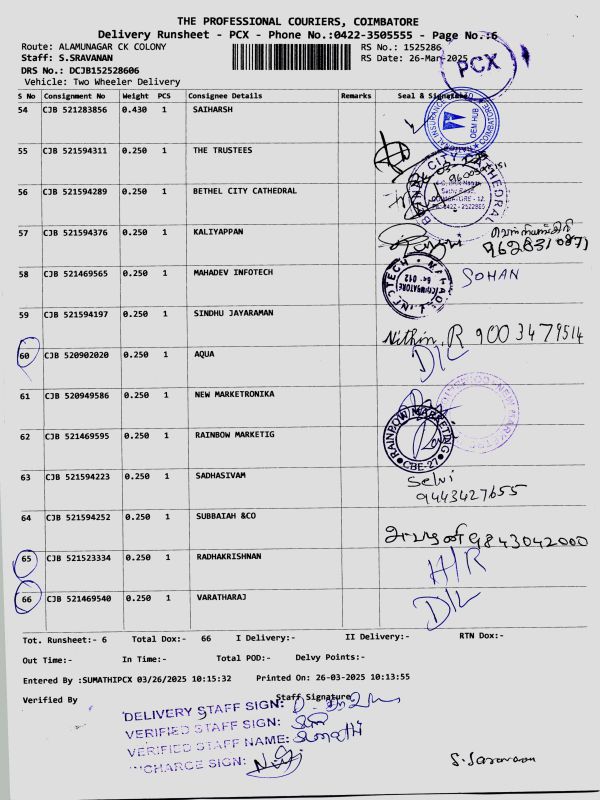 THE PROFESSIONAL COURIERS, COIMBATORE
Delivery Runsheet - PCX - Phone No.:0422-3505555 - Page No.:6
Route: ALAMUNAGAR CK COLONY RS No.: 1525286
Staff: S.SRAVANAN RS Date: 26-Mar-2025
PCX
DRS No.: DCJB152528606
Vehicle: Two Wheeler Delivery
S No Consignment No Weight PCS Consignee Details Remarks Seal & Signature
54 CJB 521283856 0.430 1 SAIHARSH
OEM HUB
55 CJB 521594311 0.250 1 THE TRUSTEES
56 CJB 521594289 0.250 1 BETHEL CITY CATHEDRAL
CITY CATHEDRAL
57 CJB 521594376 0.250 1 KALIYAPPAN
9628310871
58 CJB 521469565 0.250 1 MAHADEV INFOTECH SOHAN
59 CJB 521594197 0.250 1 SINDHU JAYARAMAN
Nithin.R 9003479514
60 CJB 520902020 0.250 1 AQUA D/L
61 CJB 520949586 0.250 1 NEW MARKETRONIKA
62 CJB 521469595 0.250 1 RAINBOW MARKETIG
RAINBOW MARKETING
CBE-27
63 CJB 521594223 0.250 1 SADHASIVAM Selvi
9443427655
64 CJB 521594252 0.250 1 SUBBAIAH &CO
9843042000
65 CJB 521523334 0.250 1 RADHAKRISHNAN H/R
66 CJB 521469540 0.250 1 VARATHARAJ D/L
Tot. Runsheet:- 6 Total Dox:- 66 I Delivery:- II Delivery:- RTN Dox:-
Out Time:- In Time:- Total POD:- Delvy Points:-
Entered By :SUMATHIPCX 03/26/2025 10:15:32 Printed On: 26-03-2025 10:13:55
Verified By Staff Signature
DELIVERY STAFF SIGN:
VERIFIED STAFF SIGN:
VERIFIED STAFF NAME: Sumathi
INCHARGE SIGN:
S. Saravanan